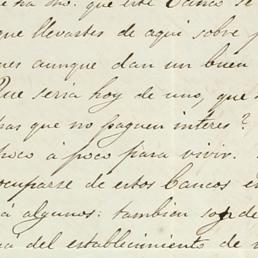 que este Banco se
que llevastes de aqui sobre
nes aunque dan un buen
Que seria hoy de uno, que
pas que no paguen interes?
poco à poco para vivir.
ocuparse de estos Bancos en
rá algunos: tambien so de
rá del establecimiento de